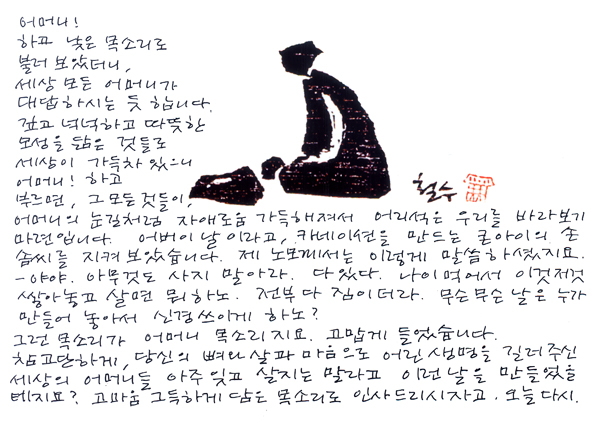 어머니!
하고 낮은 목소리로
불러 보았더니,
세상 모든 어머니가
대답하시는 듯 합니다.
깊고 넉넉하고 따뜻한
모성을 닮은 것들로
세상이 가득차 있으니
어머니! 하고
부르면, 그 모든 것들이,
철수
어머니의 눈길처럼 자애로움 가득해져서 어리석은 우리를 바라보기
마련입니다. 어버이날이라고, 카네이션을 만드는 큰아이의 손
솜씨를 지켜보았습니다. 제 노모께서는 이렇게 말씀하셨지요.
-야야. 아무것도 사지 말아라. 다 있다. 나이 먹어서 이것저것
쌓아놓고 살면 뭐하노. 전부 다 짐이더라. 무슨무슨 날은 누가
만들어 놓아서 신경쓰이게 하노?
그런 목소리가 어머니 목소리지요. 고맙게 들었습니다.
참 고단하게, 당신의 뼈와 살과 마음으로 어린 생명을 길러주신
세상의 어머니들 아주 잊고 살지는 말라고 이런 날을 만들었을
테지요? 고마움 그득하게 담은 목소리로 인사드리시자고. 오늘 다시.